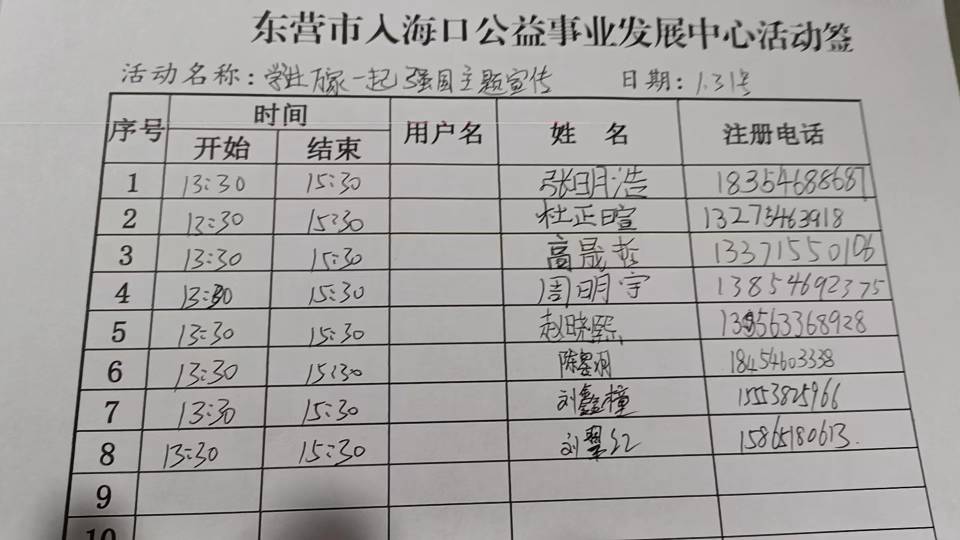 东营市入海口公益事业发展中心活动签
活动名称：学生万家一起强国主题宣传 日期：1.31号
序号 时间 用户名 姓 名 注册电话
开始 结束
1 13:30 15:30 张明浩 18354688687
2 13:30 15:30 杜正暄 13273463918
3 13:30 15:30 高晟哲 13371550106
4 13:30 15:30 周明宇 13854692375
5 13:30 15:30 赵晓熙 13563368928
6 13:30 15:30 陈 18454603338
7 13:30 15:30 刘鑫橦 15553825966
8 13:30 15:30 刘翠红 15865180613.
9
10